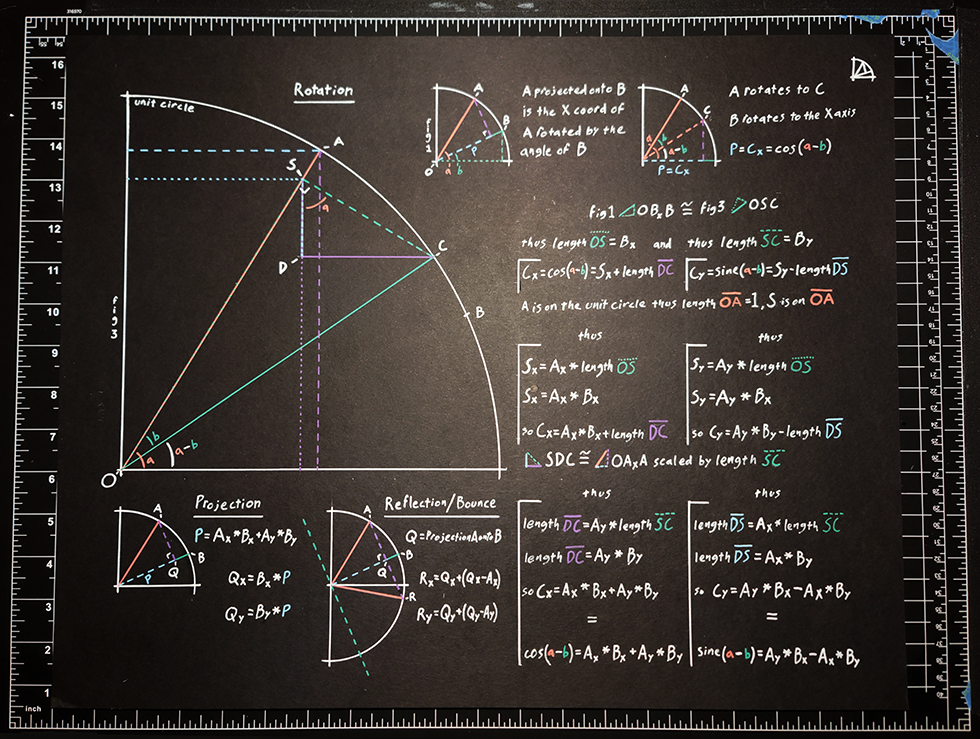 Rotation
unit circle
A
S
a
D
C
B
fig 3
b
a
a-b
O
fig 1
A
B
P
r
O
a
b
A projected onto B
is the X coord of
A rotated by the
angle of B
A
C
a
b
a-b
P=Cx
A rotates to C
B rotates to the X axis
P=Cx=cos(a-b)
fig 1 OBxB ≅ fig 3 OSC
thus length OS=Bx and thus length SC=By
Cx=cos(a-b)=Sx+length DC
Cy=sine(a-b)=Sy-length DS
A is on the unit circle thus length OA=1, S is on OA
thus
Sx=Ax*length OS
Sx=Ax*Bx
so Cx=Ax*Bx+length DC
thus
Sy=Ay*length OS
Sy=Ay*Bx
so Cy=Ay*By-length DS
SDC ≅ OAxA scaled by length SC
thus
length DC=Ay*length SC
length DC=Ay*By
so Cx=Ax*Bx+Ay*By
=
cos(a-b)=Ax*Bx+Ay*By
thus
length DS=Ax*length SC
length DS=Ax*By
so Cy=Ay*Bx-Ax*By
=
sine(a-b)=Ay*Bx-Ax*By
Projection
P=Ax*Bx+Ay*By
Qx=Bx*P
Qy=By*P
A
B
r
Q
P
Reflection/Bounce
Q=Projection A onto B
Rx=Qx+(Qx-Ax)
Ry=Qy+(Qy-Ay)
A
B
r
Q
R
16
15
14
13
12
11
10
9
8
7
6
5
4
3
2
1
inch